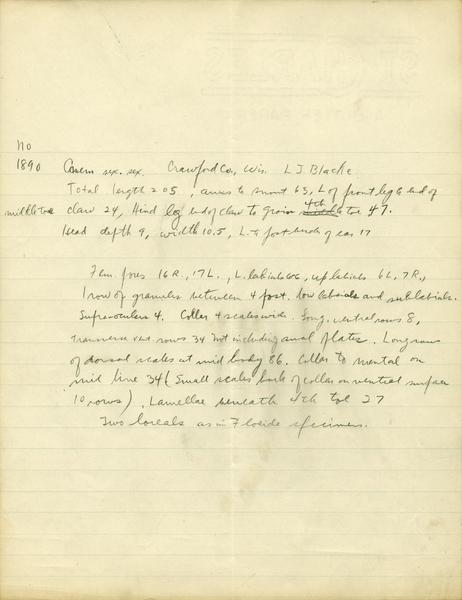 No
1890 Cnem sex. sex. Crawford Co, Wis. L J. Blacke
Total length 205, anus to snout 63, L of front leg to end of
middle toe claw 24, Hind leg end of claw to groin 4th toe 47.
Head depth 9, width 10.5, L. to post. back of ear 17
Fem. pores 16 R, 17 L., L. labials 6-6, up labials 6 L, 7 R.,
1 row of granules between 4 post. low labials and sublabials.
Supra-oculars 4. Collar 4 scales wide. Long. ventral rows 8,
transverse vent. rows 34 not including anal plates. Long rows
of dorsal scales at mid body 86. Collar to mental on
mid line 34 (Small scales back of collar on ventral surface
10 rows). Lamellae beneath 4th toe 27
Two loreals as in Floride specimens.